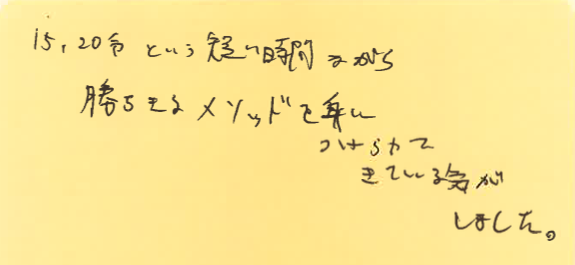 15,20分 という 短い時間ながら
勝ちきる メソッドを 身に
つけられて
きている気が
しました。